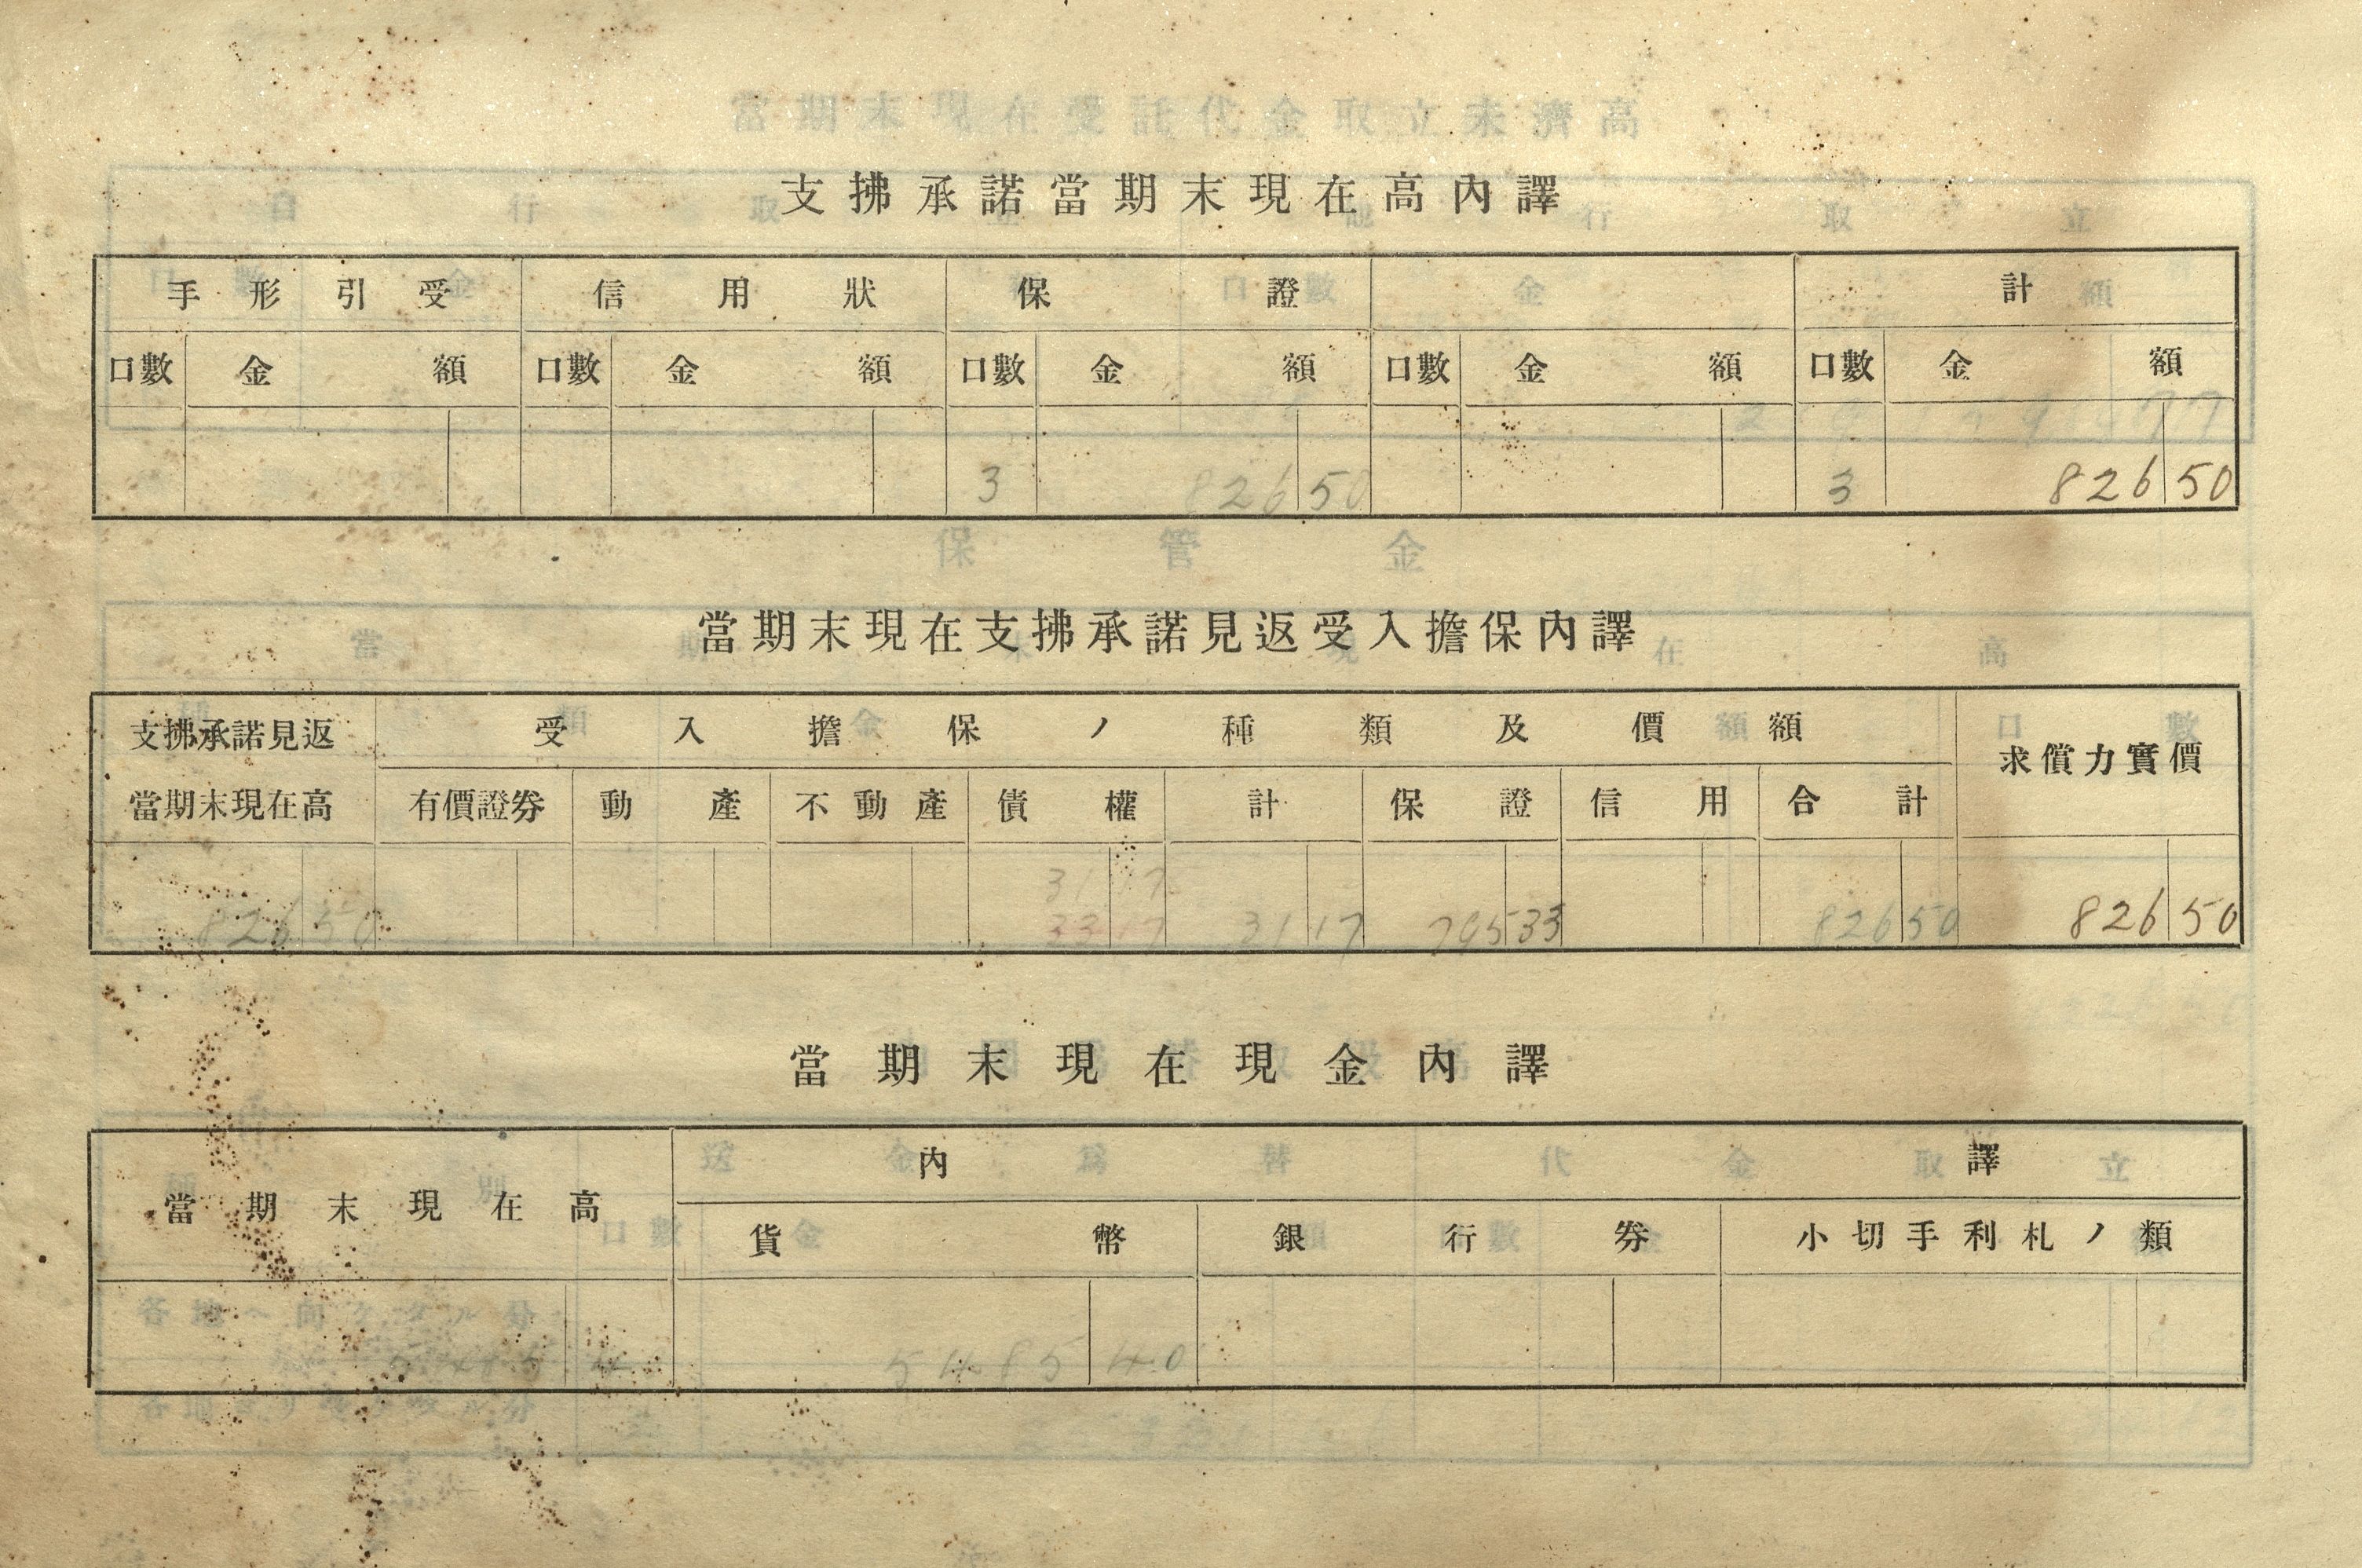 支拂承諾當期末現在高內譯
手形引受 信用狀 保證 計
口數 金額 口數 金額 口數 金額 口數 金額 口數 金額
3 826 50 3 826 50
當期末現在支拂承諾見返受入擔保內譯
支拂承諾見返 受入擔保ノ種類及價額 求償力實價
當期末現在高 有價證券 動產 不動產 債權 計 保證 信用 合計
31 17
826 50 33 17 31 17 795 33 826 50 826 50
當期末現在現金內譯
當期末現在高 內譯
貨幣 銀行券 小切手利札ノ類
5485 40